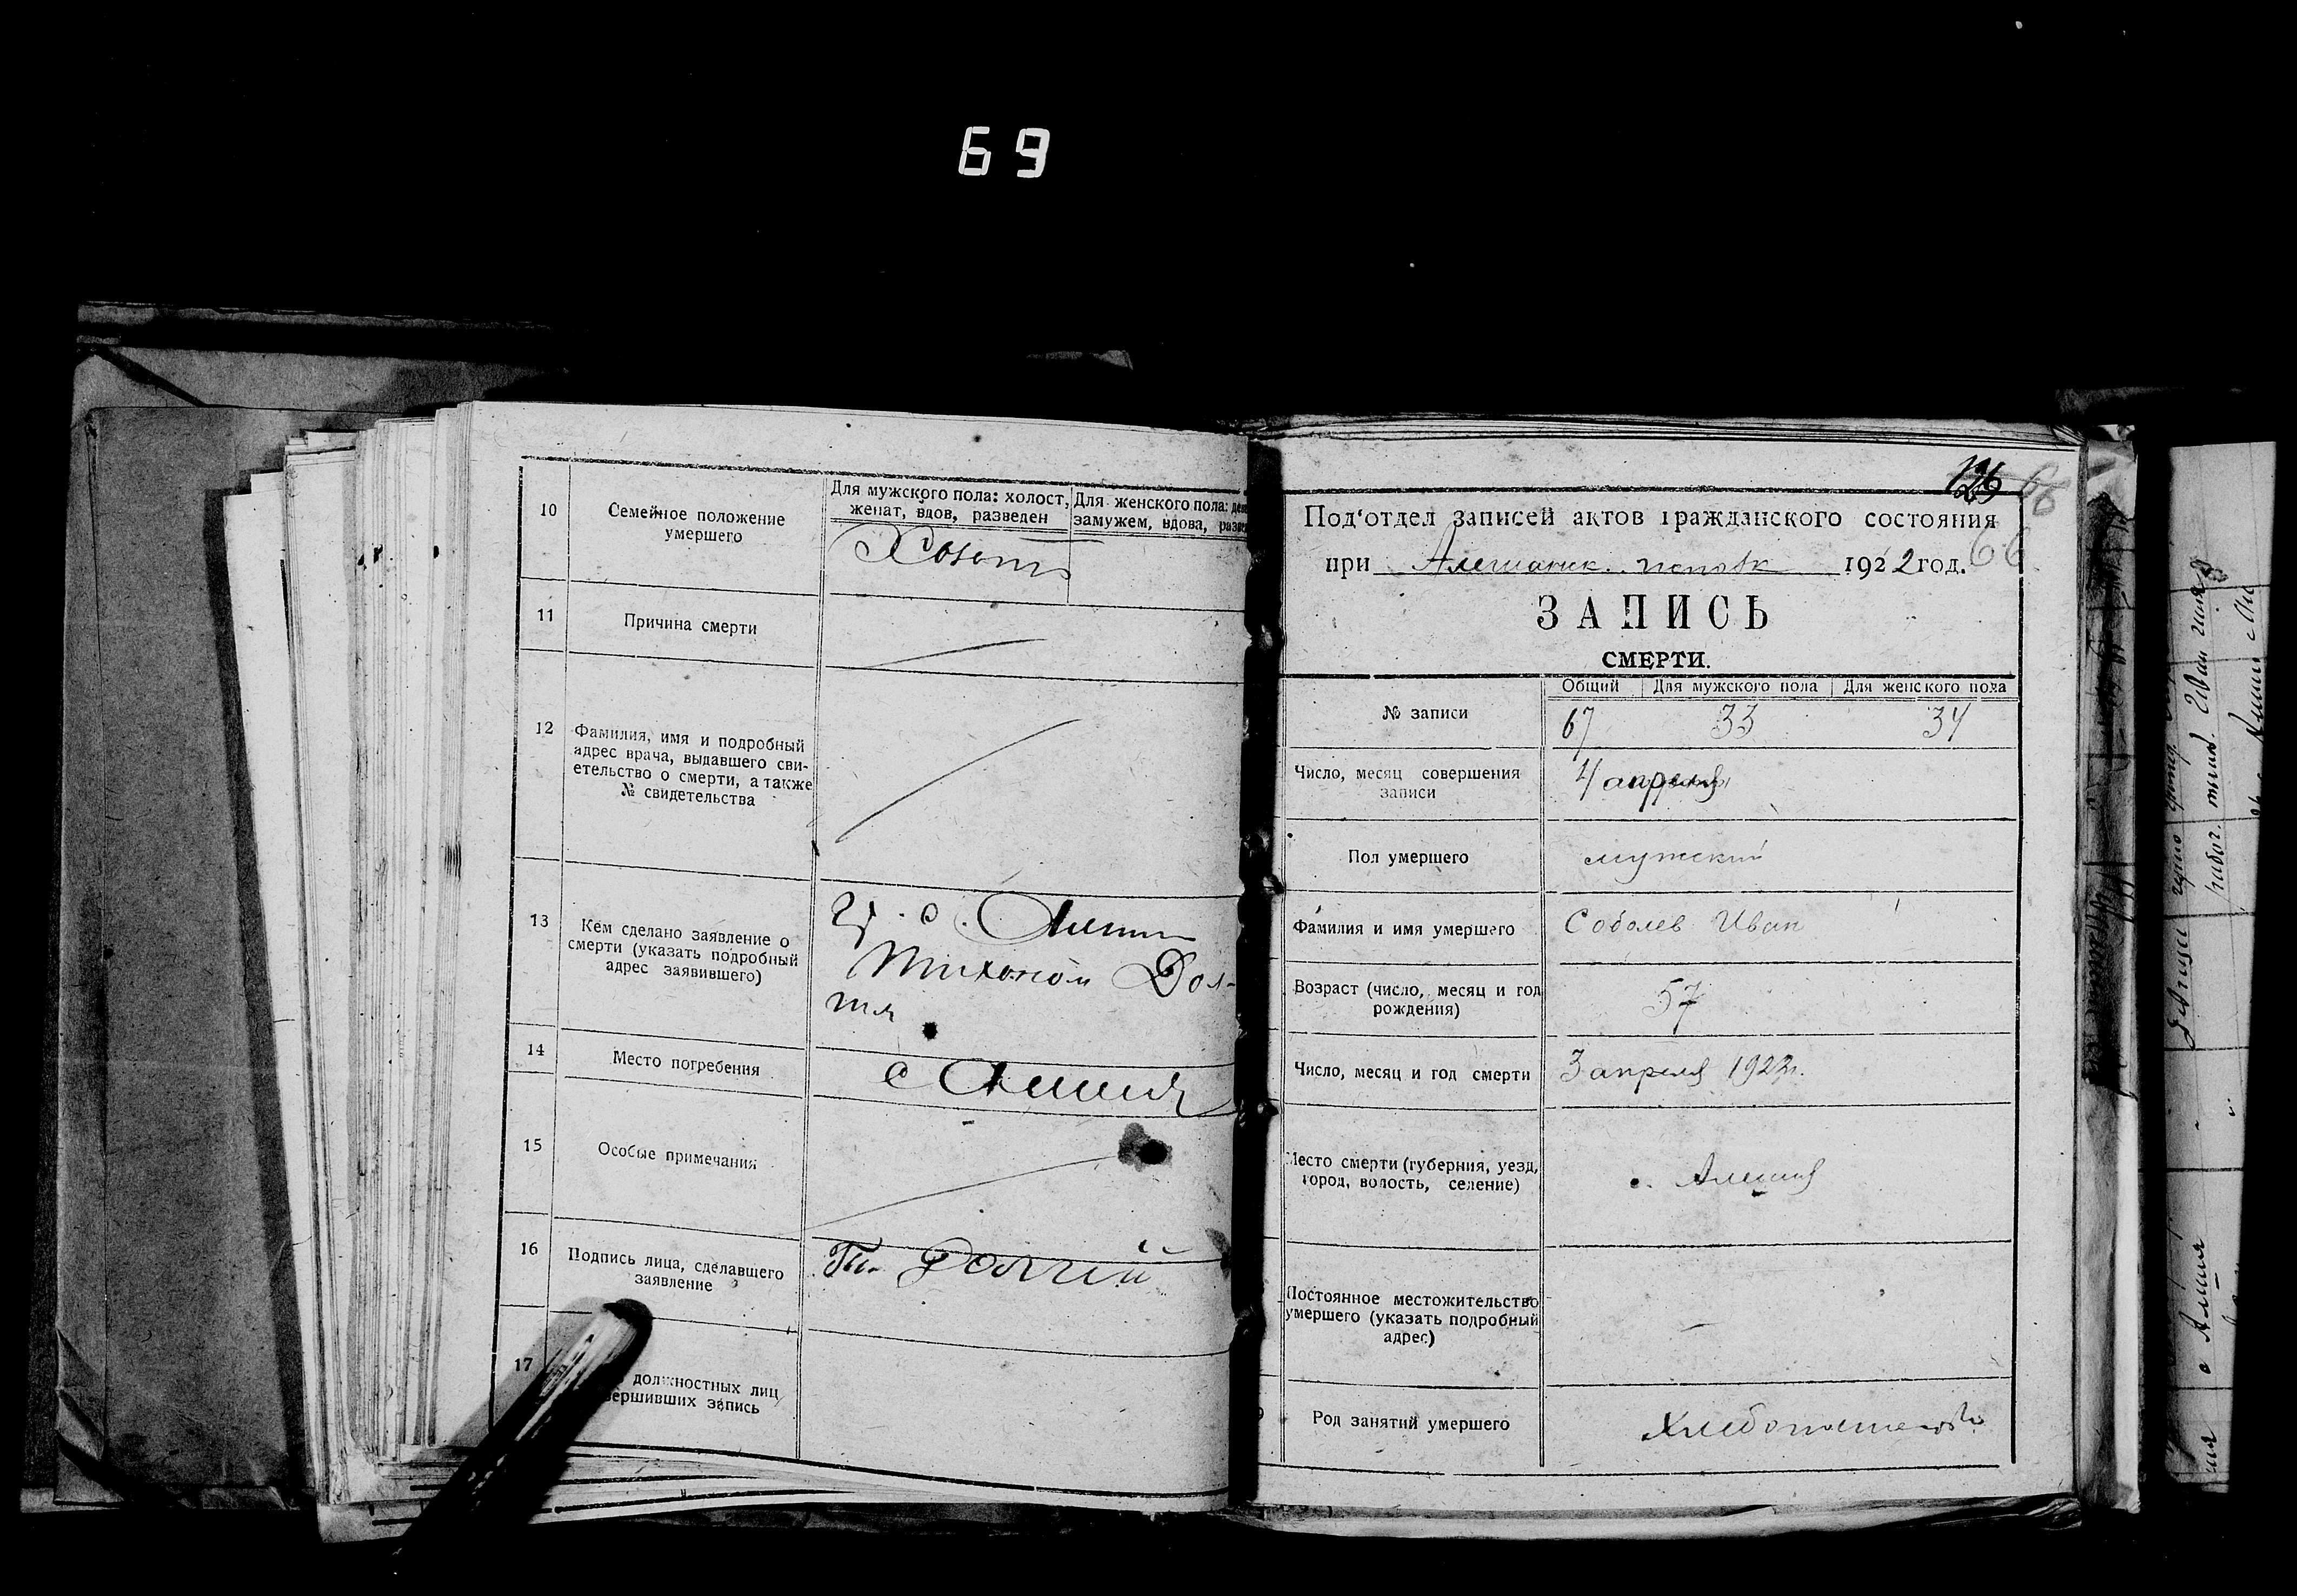 69
10
Семейное положение
умершего
Для мужского пола: холост,
женат, вдов, разведен
Для женского пола: дев
замужем, вдова, разве
Холост
11
Причина смерти
12
Фамилия, имя и подробный
адрес врача, выдавшего сви-
етельство о смерти, а также
№ свидетельства
13
Кем сделано заявление о
смерти (указать подробный
адрес заявившего)
гр. с. Алешни
Тихоном Дол-
гия
14
Место погребения
с Алешня
15
Особые примечания
16
Подпись лица, сделавшего
заявление
Долгий
17
должностных лиц
вершивших запись
126
68
66
Под'отдел записей актов гражданского состояния
при Алешанск. 1922 год.
ЗАПИСЬ
СМЕРТИ.
Общий Для мужского пола Для женского пола
№ записи
67 33 34
Число, месяц совершения
записи
4 апреля
Пол умершего
мужский
Фамилия и имя умершего
Соболев Иван
Возраст (число, месяц и год
рождения)
57
Число, месяц и год смерти
3 апреля 1922 г.
Место смерти (губерния, уезд,
город, волость, селение)
с. Алешня
Постоянное местожительство
умершего (указать подробный
адрес)
Род занятий умершего
Хлебопашество